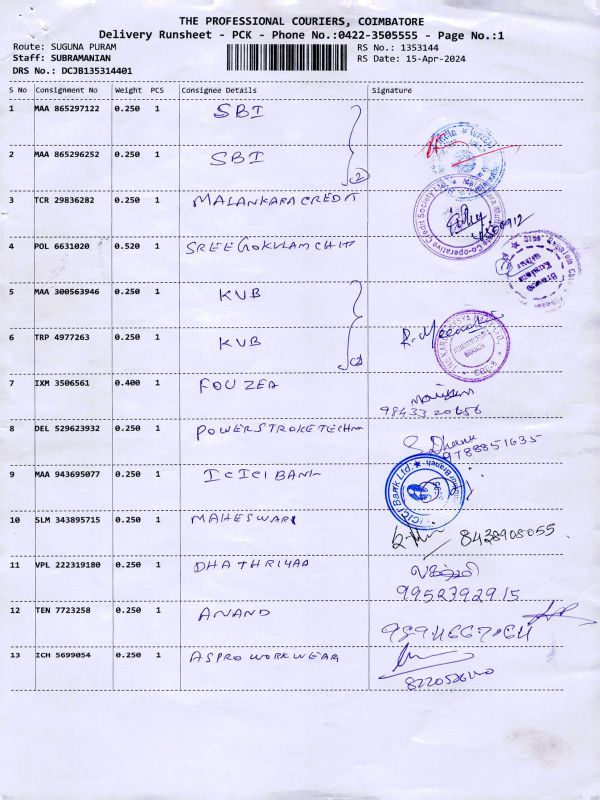 THE PROFESSIONAL COURIERS, COIMBATORE
Delivery Runsheet - PCK - Phone No.:0422-3505555 - Page No.:1
Route: SUGUNA PURAM
Staff: SUBRAMANIAN
DRS No.: DCJB135314401
RS No.: 1353144
RS Date: 15-Apr-2024
S No Consignment No Weight PCS Consignee Details Signature
1 MAA 865297122 0.250 1 SBI
2 MAA 865296252 0.250 1 SBI
3 TCR 29836282 0.250 1 MALANKARA CREDIT
4 POL 6631020 0.520 1 SREE GOKULAM CHIT
5 MAA 300563946 0.250 1 KVB
6 TRP 4977263 0.250 1 KVB
7 IXM 3506561 0.400 1 FOUZEA
9843320656
8 DEL 529623932 0.250 1 POWERSTROKE TECH
S. Dhanu
9788851635
9 MAA 943695077 0.250 1 ICICI BANK
ICICI Bank Ltd.
10 SLM 343895715 0.250 1 MAHESWARI
8438908055
11 VPL 222319180 0.250 1 DHATHRIYAA
9952392915
12 TEN 7723258 0.250 1 ANAND
13 ICH 5699054 0.250 1 ASPRO WORKWEAR